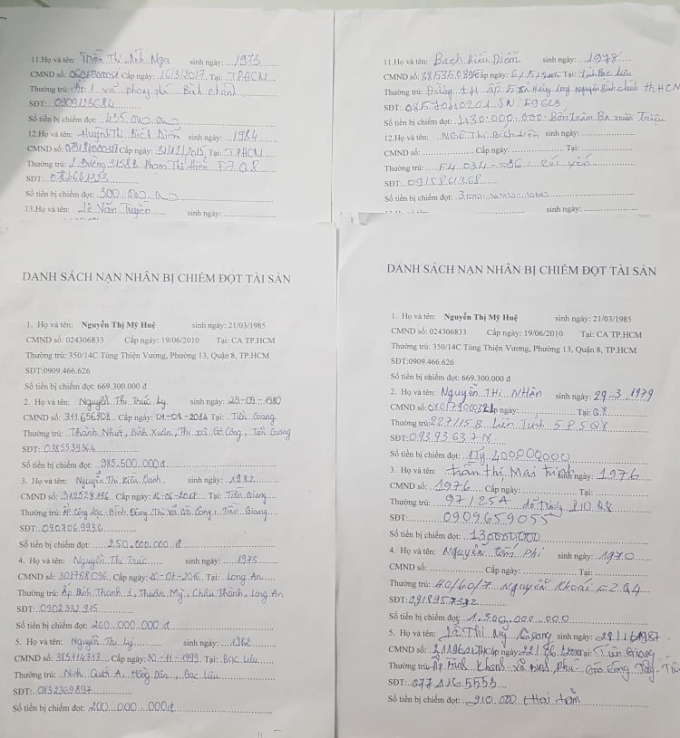 11.Họ và tên: Trần Thị Ánh Nga sinh ngày: 1973
CMND số: Cấp ngày: 16/3/2017 Tại: TPHCM
Thường trú: Ấp 1 xã phong phú Bình chánh
SĐT: 0909123684
Số tiền bị chiếm đoạt: 435.000.000
12.Họ và tên: Huỳnh Thị Bích Diễm sinh ngày: 1984
CMND số: Cấp ngày: 31/12/2015 Tại: TPHCM
Thường trú: 2 Đường 3158B Phạm Thế Hiển F7.Q8
SĐT:
Số tiền bị chiếm đoạt: 300.000.000
13.Họ và tên: Lê Văn Tuyền sinh ngày:
11.Họ và tên: Bạch Kiều Diễm sinh ngày: 1978
CMND số: 385350896 Cấp ngày: 6/5/2005 Tại: tỉnh Bạc Liêu
Thường trú: Đường T11 ấp 5 xã Hưng Long huyện Bình chánh tp.HCM
SĐT: 0857040201
Số tiền bị chiếm đoạt: 1430.000.000 Ba mươi Triệu
12.Họ và tên: Ngô Thị Bích Liên sinh ngày:
CMND số: Cấp ngày: Tại:
Thường trú: P4 034-036
SĐT: 0915861368
Số tiền bị chiếm đoạt:
DANH SÁCH NẠN NHÂN BỊ CHIẾM ĐỌT TÀI SẢN
1. Họ và tên: Nguyễn Thị Mỹ Huệ sinh ngày: 21/03/1985
CMND số: 024306833 Cấp ngày: 19/06/2010 Tại: CA TP.HCM
Thường trú: 350/14C Tùng Thiện Vương, Phường 13, Quận 8, TP.HCM
SĐT:0909.466.626
Số tiền bị chiếm đoạt: 669.300.000 đ
2. Họ và tên: Nguyễn Thị Trúc Ly sinh ngày: 25-09-1980
CMND số: 311.656308 Cấp ngày: 01-04-2014 Tại: Tiền Giang
Thường trú: Thành Nhứt, Bình Xuân, Thị xã Gò Công, Tiền Giang
SĐT: 0385539364
Số tiền bị chiếm đoạt: 985.500.000đ
3. Họ và tên: Nguyễn Thị Kiều Oanh sinh ngày: 1982
CMND số: Cấp ngày: Tại: Tiền Giang
Thường trú: Bình Đông, Thị Xã Gò Công, Tiền Giang
SĐT: 0907069936
Số tiền bị chiếm đoạt: 250.000.000 đ
4. Họ và tên: Nguyễn Thị Trúc sinh ngày: 1975
CMND số: 301768096 Cấp ngày: 20-07-2016 Tại: Long An
Thường trú: Ấp Bình Thạnh 1, Thuận Mỹ, Châu Thành, Long An
SĐT: 0902332915
Số tiền bị chiếm đoạt: 260.000.000 đ
5. Họ và tên: Nguyễn Thị Lý sinh ngày: 1962
CMND số: Cấp ngày: 30-11-1999 Tại: Bạc Liêu
Thường trú: Ninh Quới A, Hồng Dân, Bạc Liêu
SĐT: 0832369897
Số tiền bị chiếm đoạt: 200.000.000đ
DANH SÁCH NẠN NHÂN BỊ CHIẾM ĐỌT TÀI SẢN
1. Họ và tên: Nguyễn Thị Mỹ Huệ sinh ngày: 21/03/1985
CMND số: 024306833 Cấp ngày: 19/06/2010 Tại: CA TP.HCM
Thường trú: 350/14C Tùng Thiện Vương, Phường 13, Quận 8, TP.HCM
SĐT:0909.466.626
Số tiền bị chiếm đoạt: 669.300.000 đ
2. Họ và tên: Nguyễn Thị Nhân sinh ngày: 29.3.1979
CMND số: Cấp ngày: Tại: Q8
Thường trú: 227/15B Liên Tỉnh 5 P5 Q8
SĐT:
Số tiền bị chiếm đoạt: 1 Tỷ 400000000
3. Họ và tên: Trần Thị Mai Trinh sinh ngày: 1976
CMND số: 1976 Cấp ngày: Tại:
Thường trú: 97/25A P10 Q8
SĐT: 0909659055
Số tiền bị chiếm đoạt: 130000000
4. Họ và tên: Nguyễn Tấn Phi sinh ngày: 1970
CMND số: Cấp ngày: Tại:
Thường trú: 40/60/7 Nguyễn Khoái F2 Q4
SĐT: 0918957392
Số tiền bị chiếm đoạt: 1.500.000.000
5. Họ và tên: Lê Thị Mỹ Giang sinh ngày:
CMND số: Cấp ngày: Tại: Tiền Giang
Thường trú: Ấp Bình Khánh xã Bình Phú Gò Công Tây
SĐT: 0772165553
Số tiền bị chiếm đoạt: 210.000